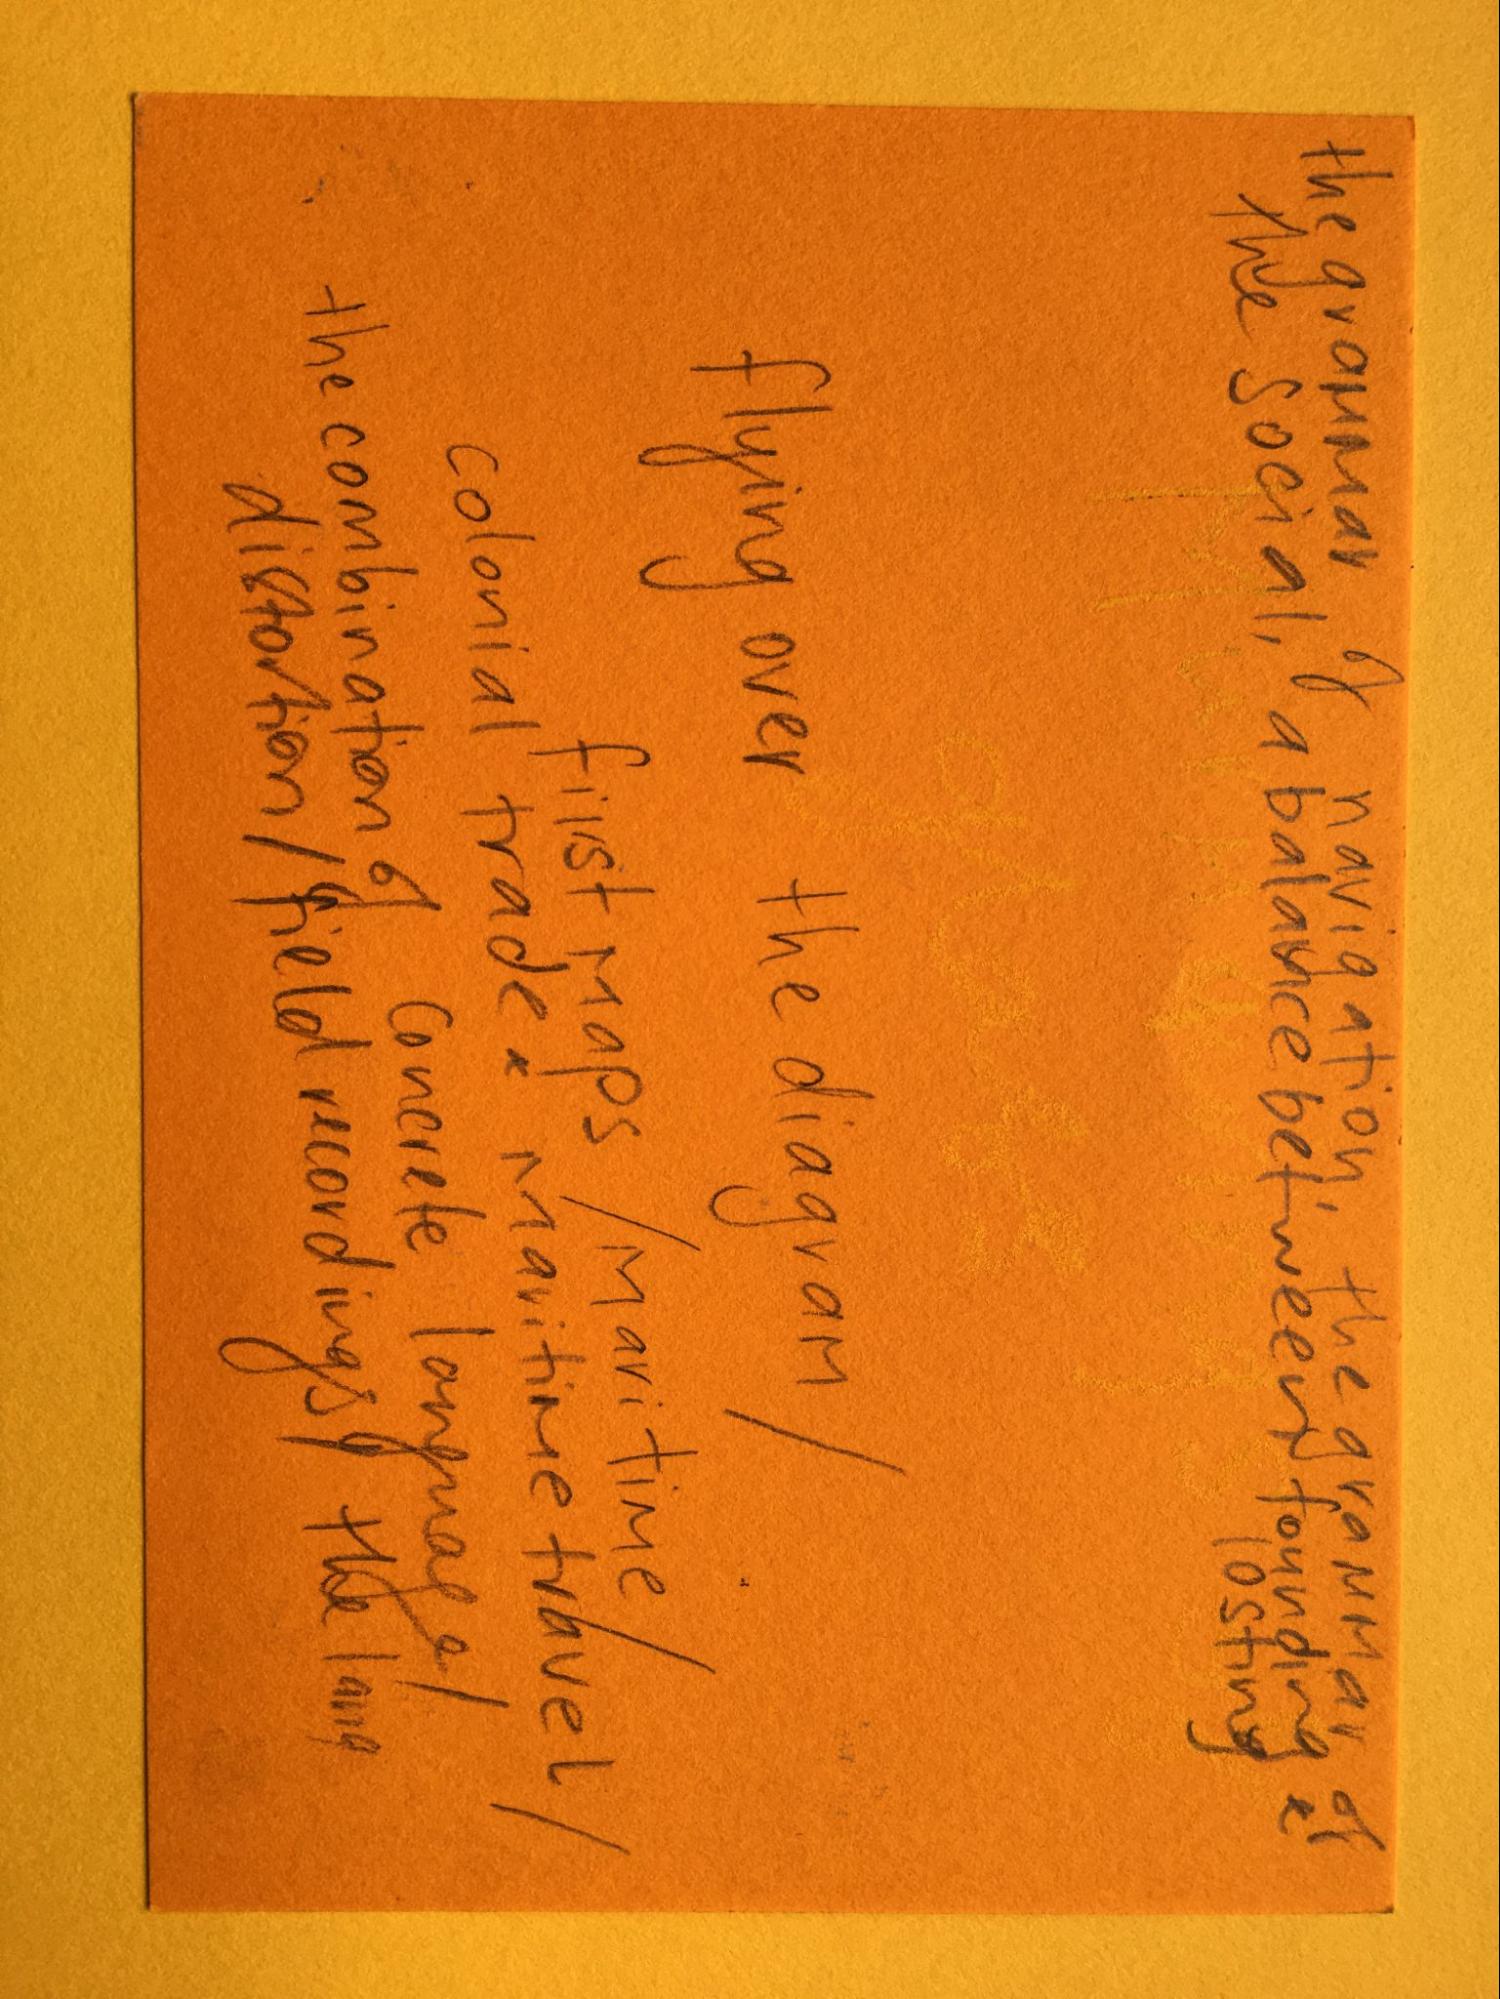 the grammar of navigation, the grammar of
the social, a balance between founding &
losting
flying over the diagram /
first maps / maritime /
colonial trade & maritime travel /
the combination of concrete language /
distortion / field recordings / the lang